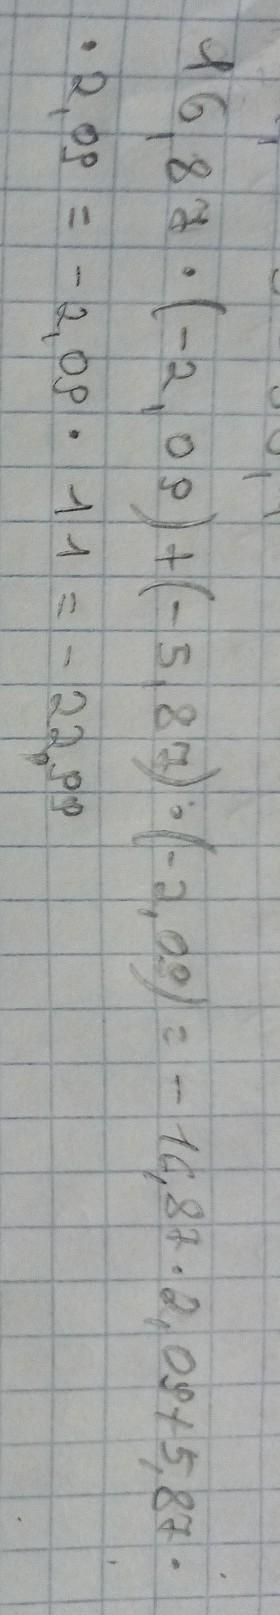 16,87 · (-2,09) + (-5,87) · (-2,09) = - 16,87 · 2,09 + 5,87 ·
· 2,09 = - 2,09 · 11 = - 22,99